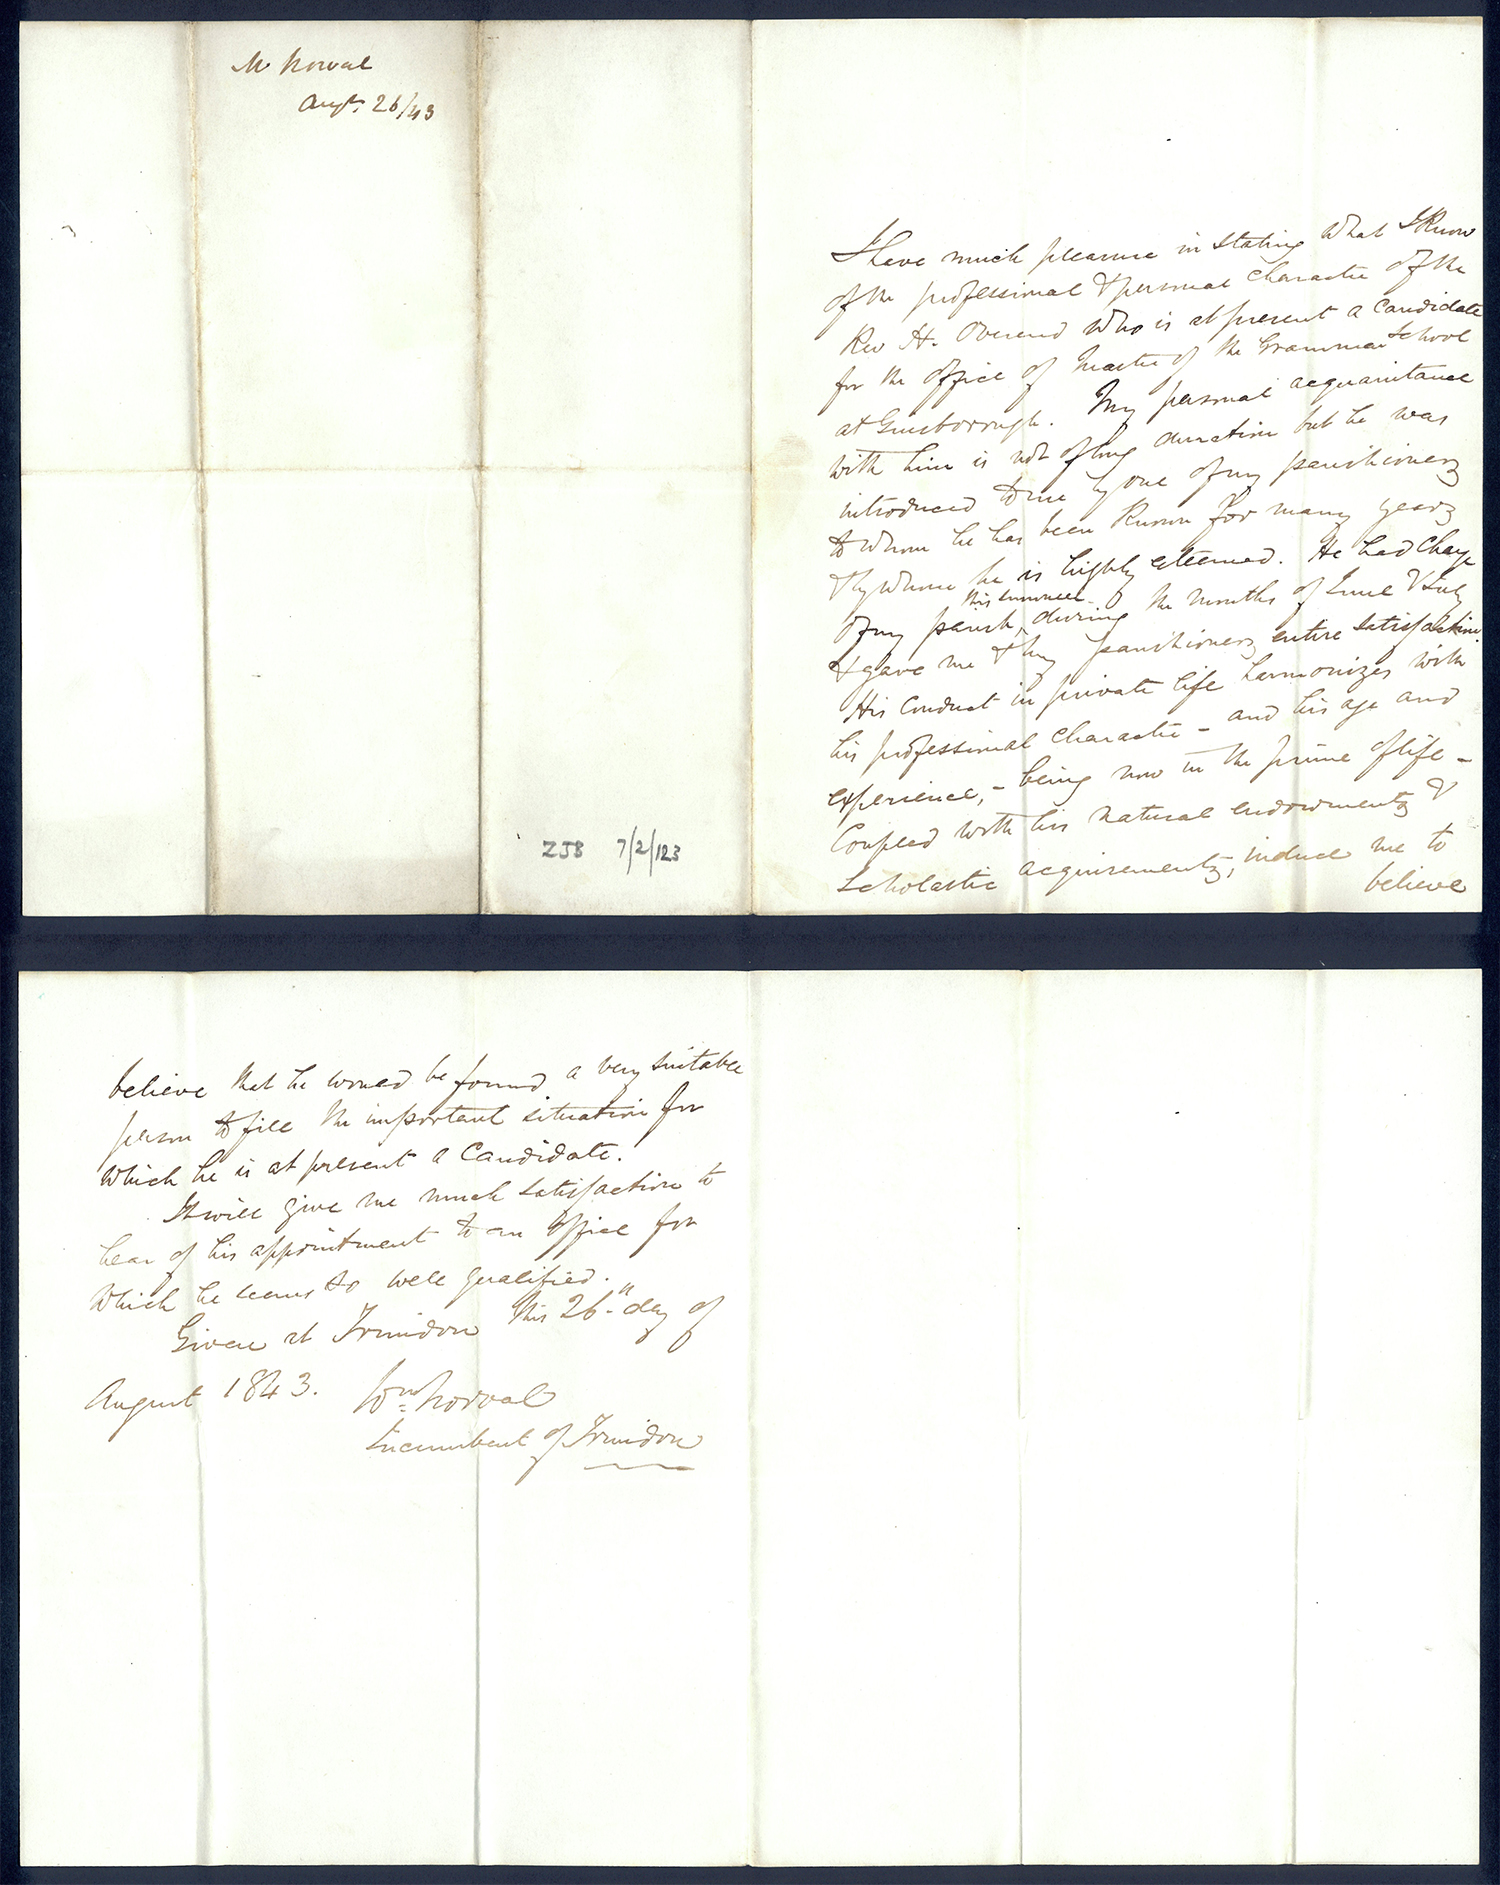 Mr Norval
Augt. 26/43
ZJB 7/2/123
I have much pleasure in stating what I know
of the professional & personal character of the
Rev H. Overend who is at present a candidate
for the office of Master of the Grammar School
at Guisborough. My personal acquaintance
with him is not of long duration but he was
introduced to me by one of my parishioners
to whom he has been known for many years
& by whom he is highly esteemed. He had charge
of my parish, this summer during the months of June & July
& gave me & my parishioners entire satisfaction.
His conduct in private life harmonizes with
his professional character - and his age and
experience, - being now in the prime of life -
Coupled with his natural endowments &
Scholastic acquirements, induce me to
believe
believe that he would be found a very suitable
person to fill the important situation for
which he is at present a Candidate.
It will give me much satisfaction to
hear of his appointment to an office for
which he seems so well qualified.
Given at Trimdon this 26th day of
August 1843. Wm Norval
Incumbent of Trimdon